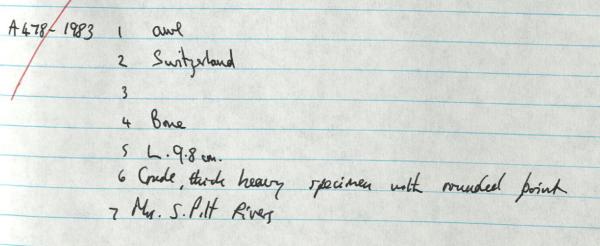 A478-1983 1 awl
2 Switzerland
3
4 Bone
5 L. 9.8 cm.
6 Crude, thick heavy specimen with rounded point
7 Mrs. S. Pitt Rivers